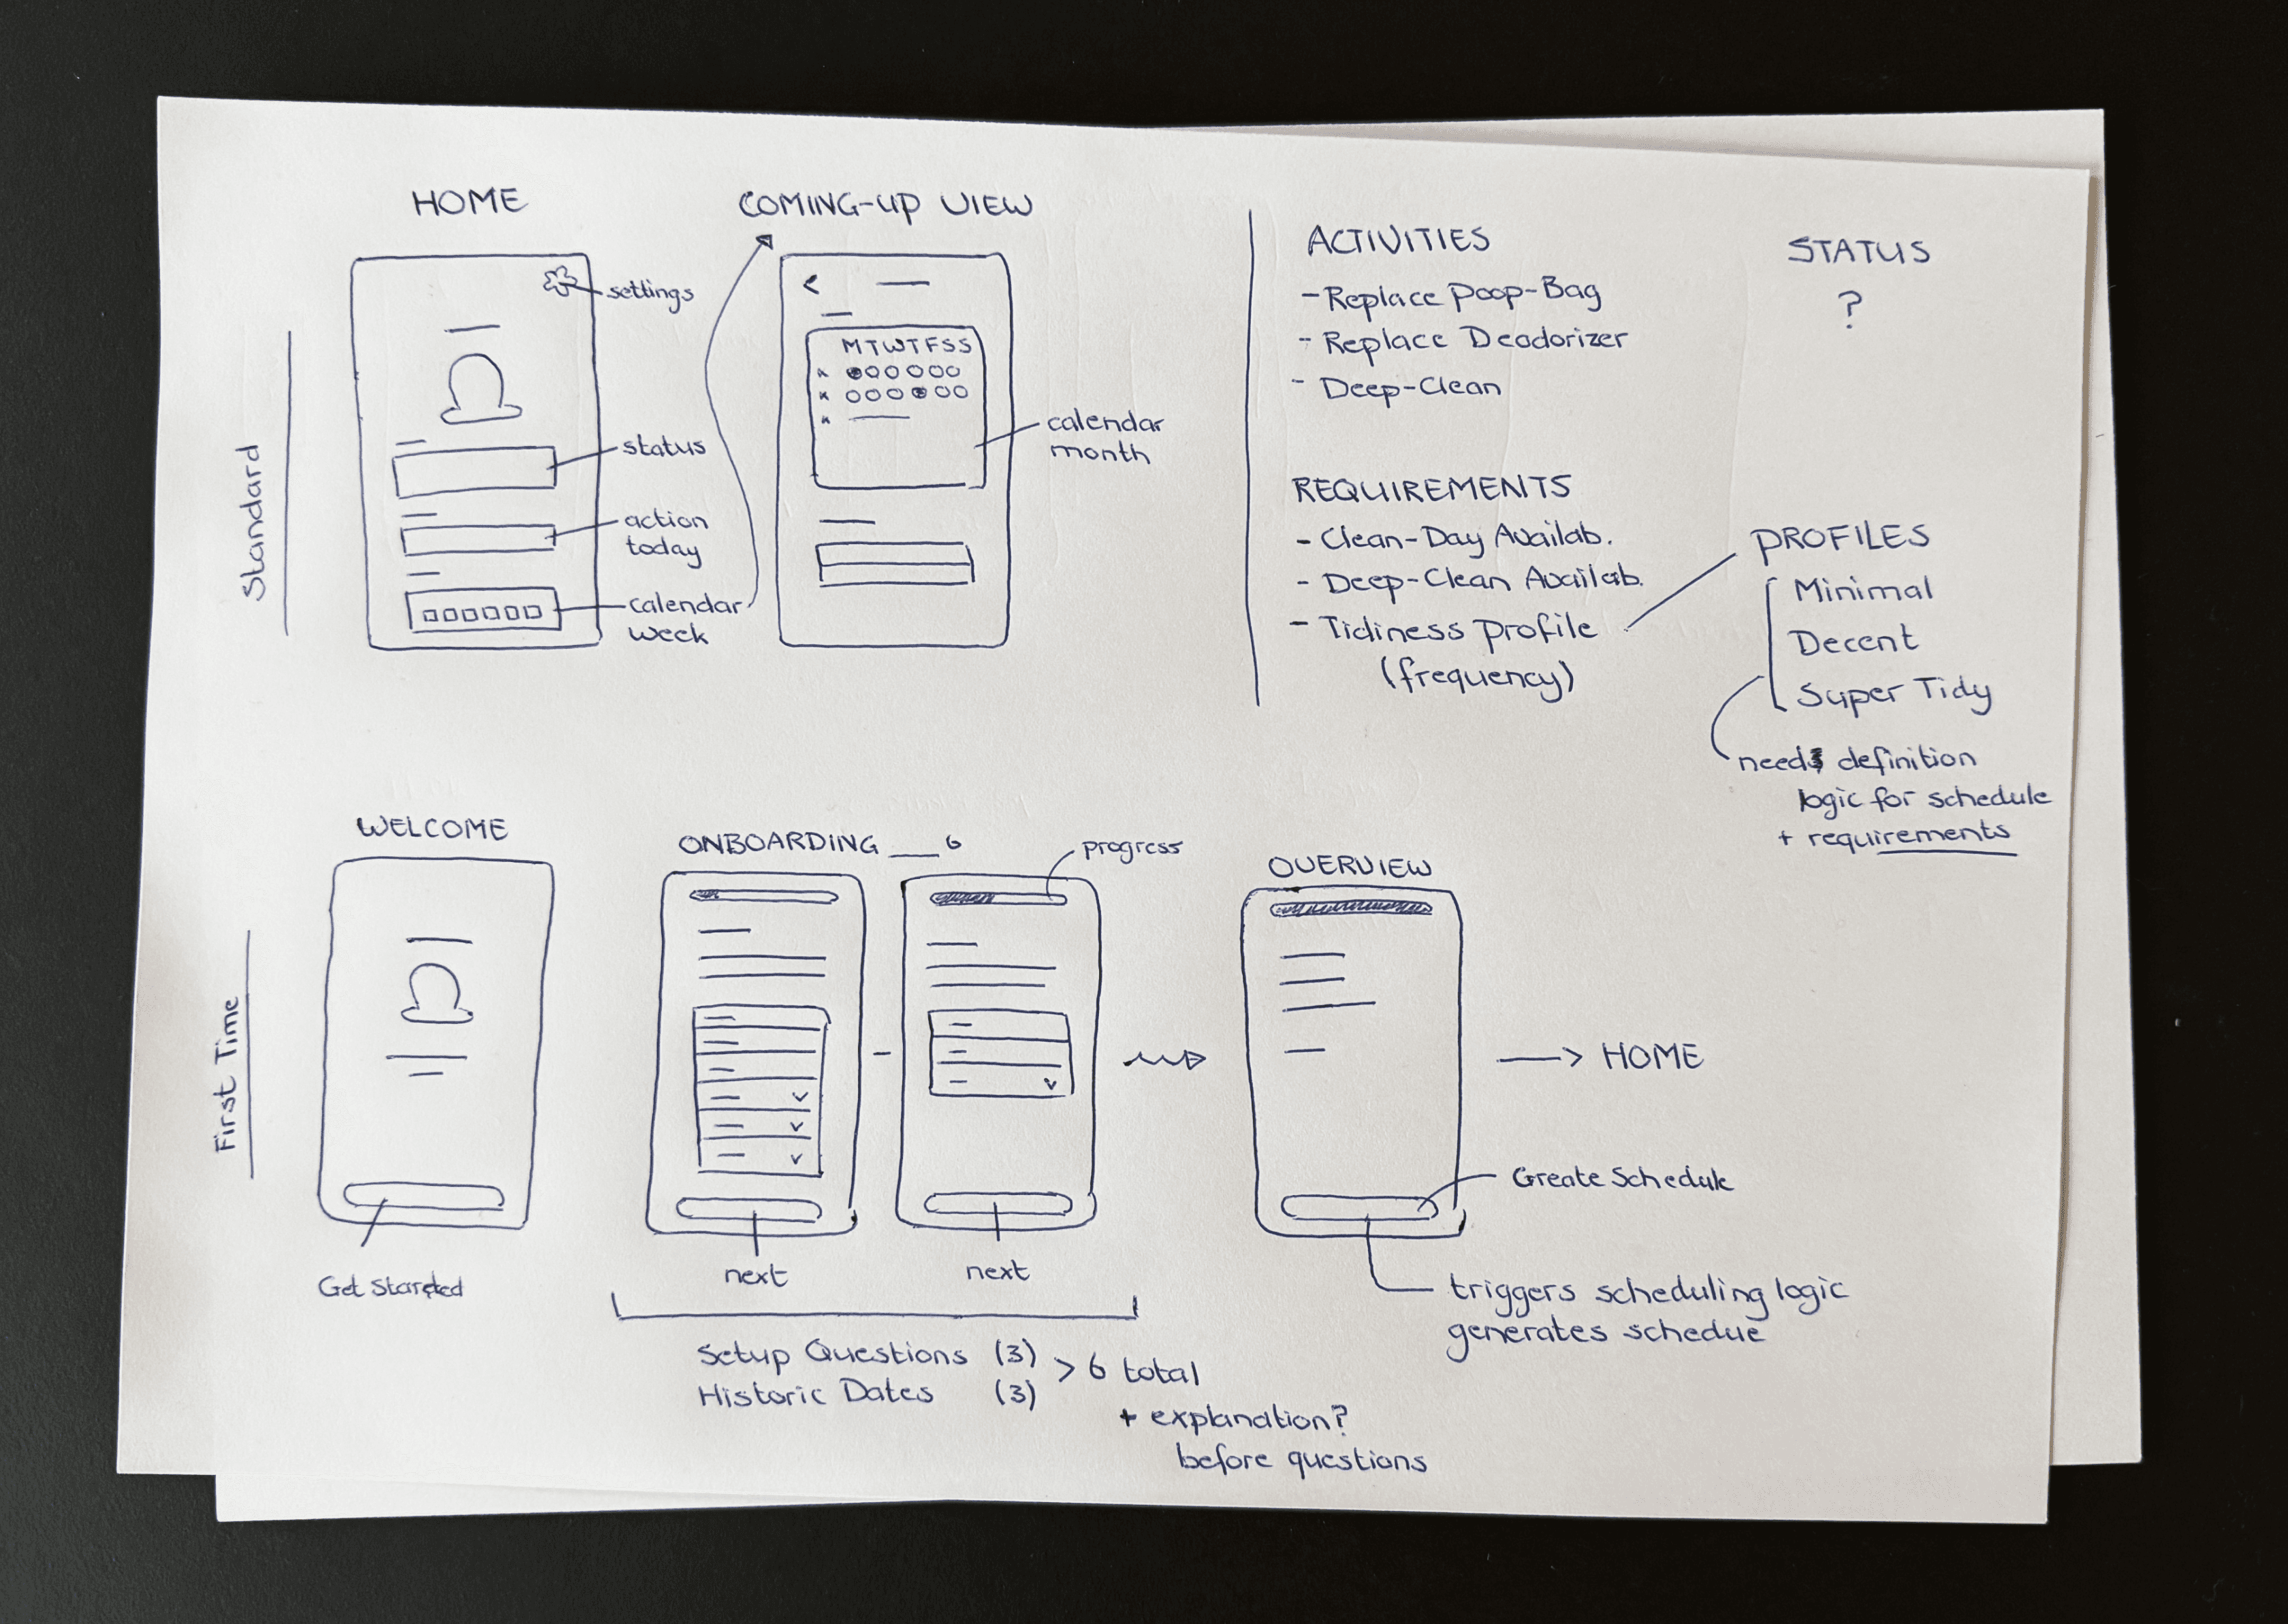 Standard
HOME
settings
status
action
today
calendar
week
COMING-UP VIEW
<
M T W T F S S
calendar
month
ACTIVITIES
- Replace Poop-Bag
- Replace Deodorizer
- Deep-Clean
STATUS
?
REQUIREMENTS
- Clean-Day Availab.
- Deep-Clean Availab.
- Tidiness Profile
(frequency)
PROFILES
Minimal
Decent
Super Tidy
needs definition
logic for schedule
+ requirements
First Time
WELCOME
Get Started
ONBOARDING __ 6
progress
next
next
Setup Questions (3)
Historic Dates (3)
> 6 total
+ explanation?
before questions
OVERVIEW
Create Schedule
triggers scheduling logic
generates schedue
→ HOME